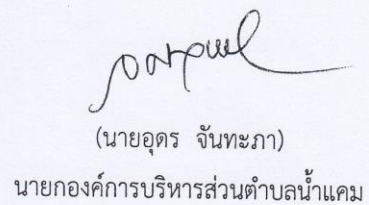 (นายอุดร จันทะภา)
นายกองค์การบริหารส่วนตำบลน้ำแคม